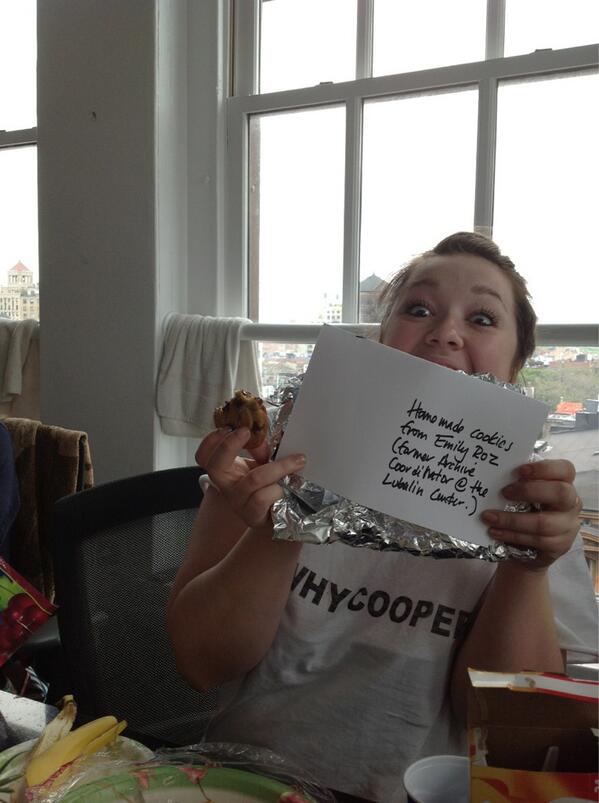 Homemade cookies
from Emily Roz
(former Archive
Coordinator @ the
Lubalin Center.)
WHYCOOPER